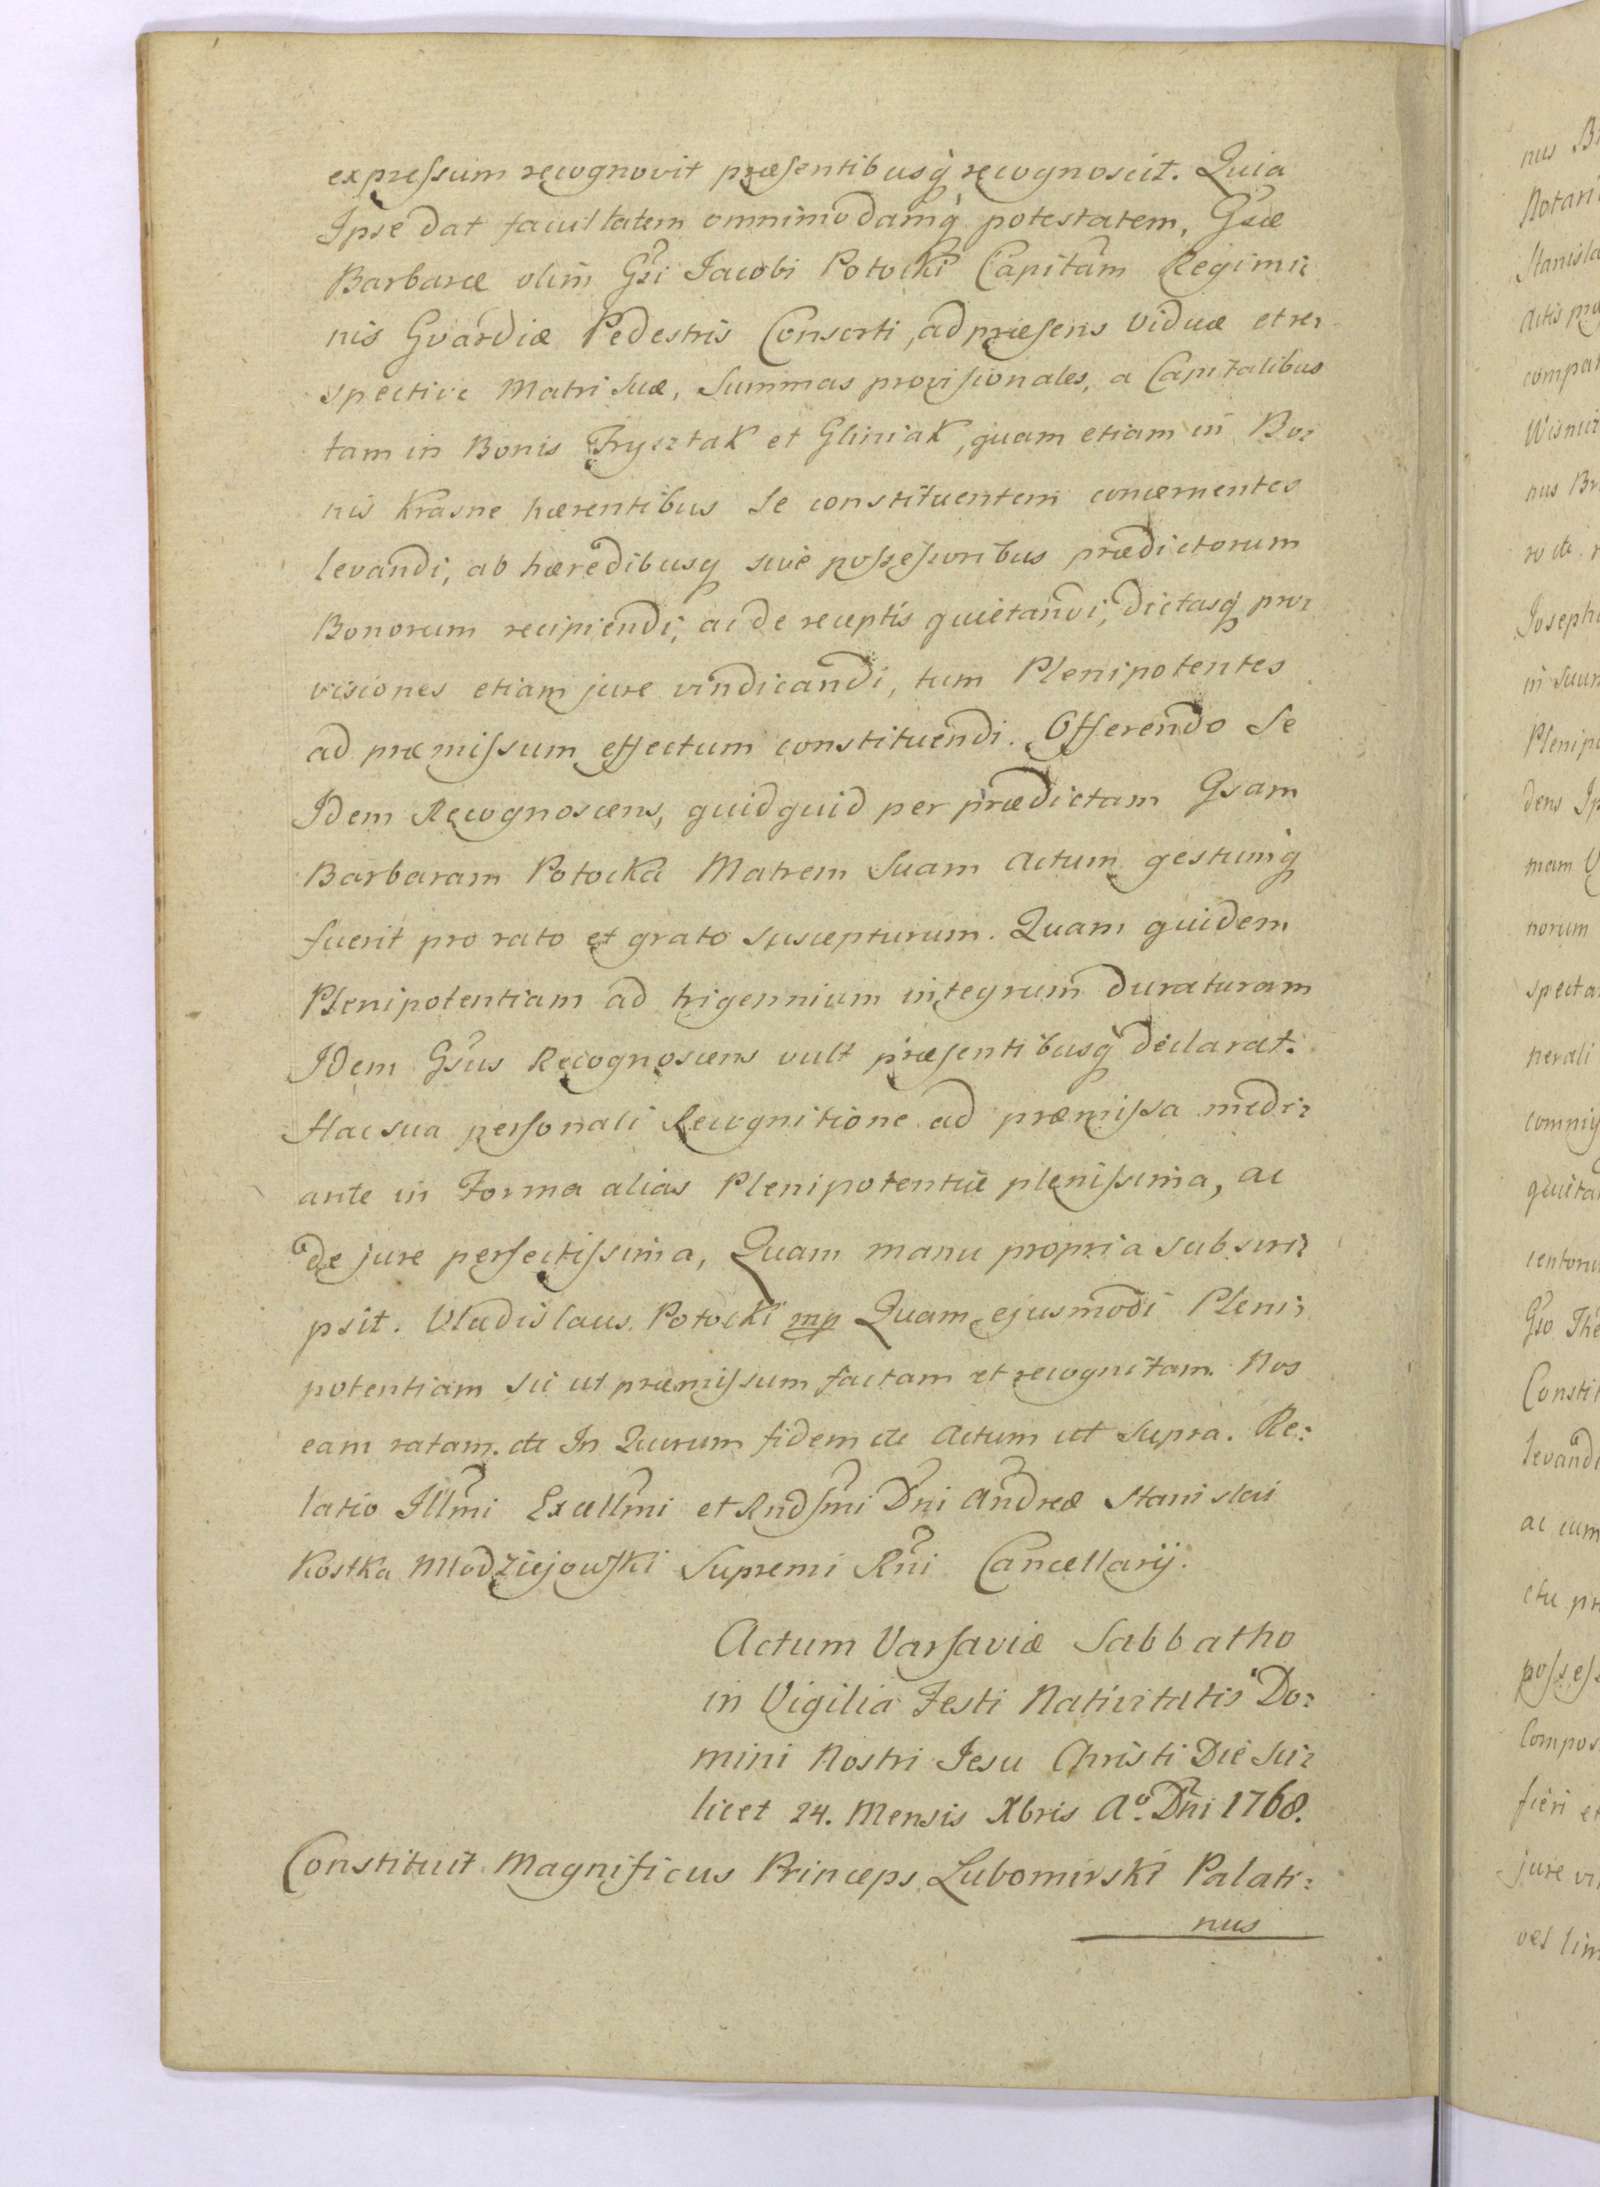 expressum recognovit præsentibusq́ recognoscit. Quia
Ipse dat facultatem omnimodamq́ potestatem, Gsæ
Barbaræ olim Gsi Jacobi Potocki Capitam Regimi:
nis Gvardiæ Pedestris Consorti, ad præsens viduæ et re:
spective Matri Suæ, Summas provisionales, a Capitalibus
tam in Bonis Frysztak et Gliniak, quam etiam in Bo:
nis Krasne hærentibus Se constituentem concernentes
levandi, ab hæredibusq́ sive possessoribus prædictorum
Bonorum recipiendi, ac de receptis quietandi, dictasq́ pro:
visiones etiam jure vindicandi, tum Plenipotentes
ad præmissum effectum constituendi. Offerendo Se
Idem Recognoscens, quidquid per prædictam Gsam
Barbaram Potocka Matrem Suam actum gestumq́
fuerit pro rato et grato suscepturum. Quam quidem
Plenipotentiam ad trigennium integrum duraturam
Idem Gsus Recognoscens vult præsentibusq́ declarat.
Hac sua personali Recognitione ad præmissa medi:
ante in Forma alias Plenipotentiæ plenissima, ac
de jure perfectissima, Quam manu propria subscri:
psit. Vladislaus Potocki mp Quam ejusmodi Pleni:
potentiam sic ut præmissum factam et recognitam. Nos
eam ratam. etc In Quorum fidem etc Actum ut supra. Re:
latio Illmi Excellmi et Rndsmi Dni Andreæ Stanislai
Kostka Młodziejowski Supremi Rni Cancellarij.
Actum Varsaviæ Sabbatho
in Vigilia Festi Nativitatis Do:
mini Nostri Jesu Christi Die Sci:
licet 24. Mensis Xbris Aº. Dni 1768.
Constituit Magnificus Princeps Lubomirski Palati:
nus